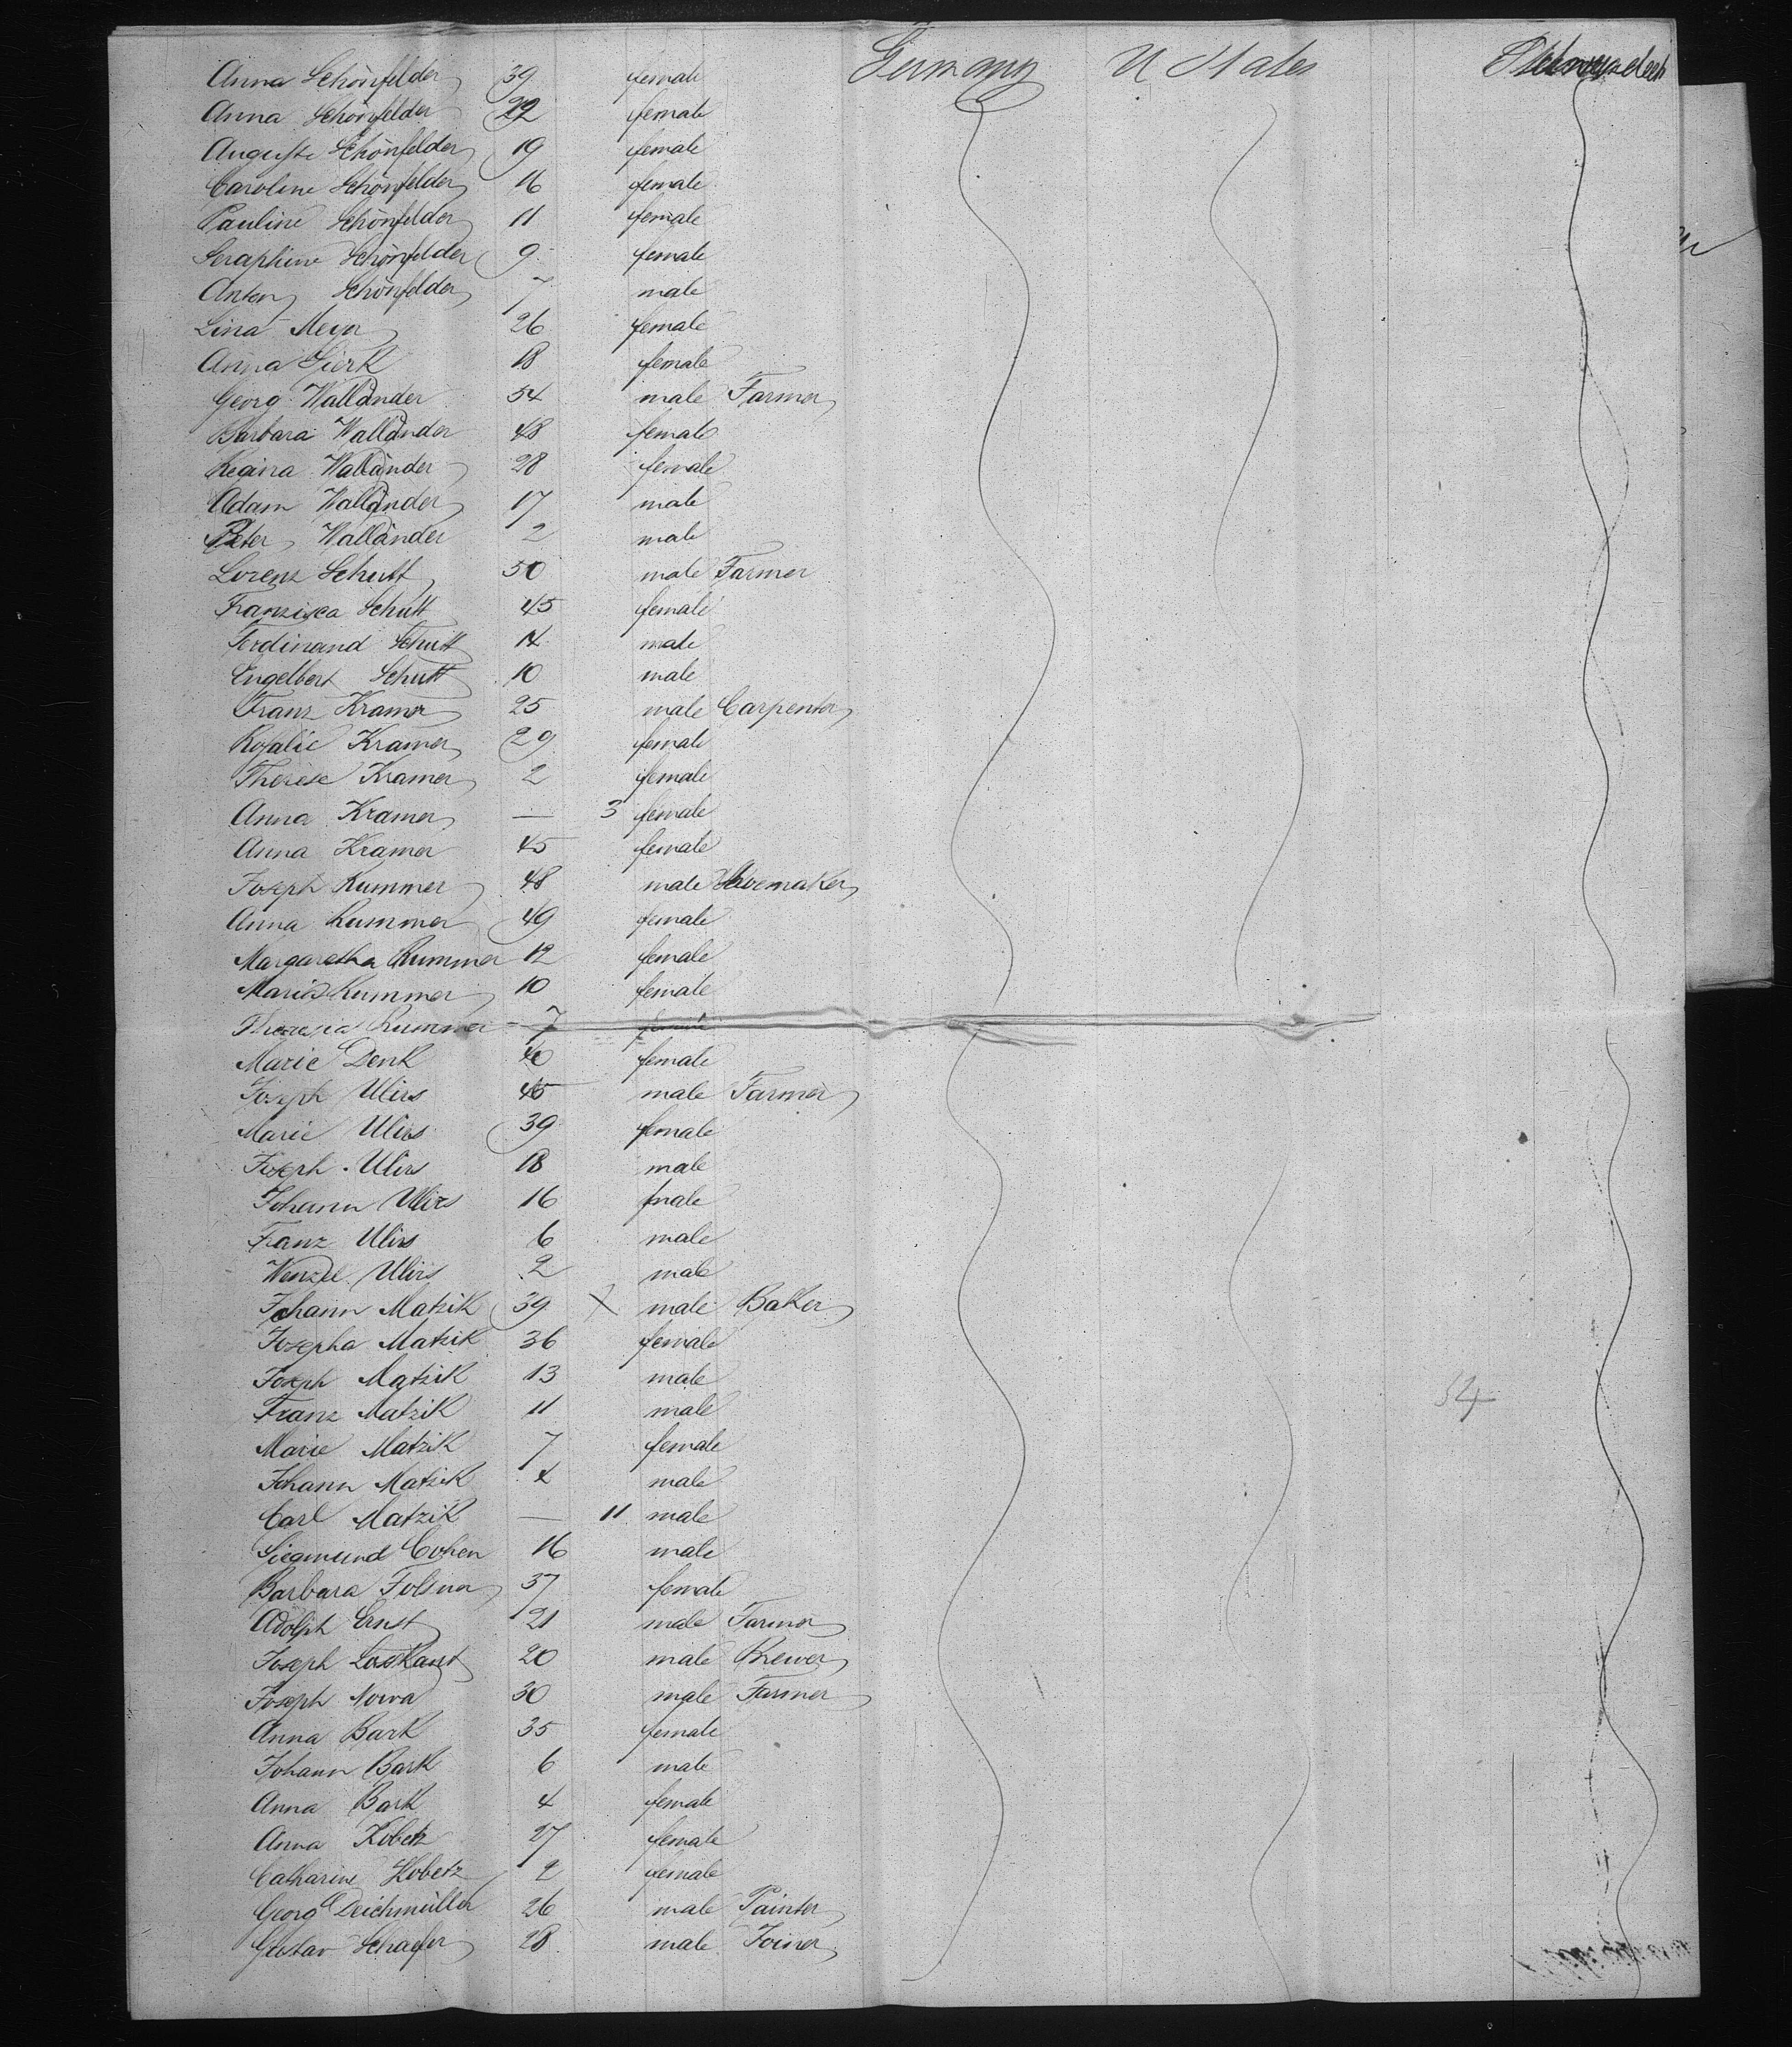 Anna Schönfelder 39 female Germany U States Zwischendeck
Anna Schönfelder 22 female
Auguste Schönfelder 19 female
Caroline Schönfelder 16 female
Pauline Schönfelder 11 female
Seraphine Schönfelder 9 female
Anton Schönfelder 7 male
Lina Meyer 26 female
Anna Gierk 18 female
Georg Walländer 54 male Farmer
Barbara Walländer 48 female
Regina Walländer 28 female
Adam Walländer 17 male
Peter Walländer 2 male
Lorenz Schutt 50 male Farmer
Franzisca Schutt 45 female
Ferdinand Schutt 14 male
Engelbert Schutt 10 male
Franz Kramer 25 male Carpenter
Rosalie Kramer 29 female
Therese Kramer 2 female
Anna Kramer — 3 female
Anna Kramer 45 female
Joseph Kummer 48 male Shoemaker
Anna Kummer 49 female
Margaretha Kummer 12 female
Maria Kummer 10 female
Theresia Kummer 7 female
Marie Denk 40 female
Joseph Ulirs 45 male Farmer
Marie Ulirs 39 female
Joseph Ulirs 18 male
Johann Ulirs 16 male
Franz Ulirs 6 male
Wenzel Ulirs 2 male
Johann Matzik 39 X male Baker
Josepha Matzik 36 female
Joseph Matzik 13 male
Franz Matzik 11 male 54
Marie Matzik 7 female
Johann Matzik 4 male
Carl Matzik — 11 male
Siegmund Cohen 16 male
Barbara 37 female
Adolph Ernst 21 male Farmer
Joseph Loskant 20 male Brewer
Joseph Nowa 30 male Farmer
Anna Bark 35 female
Johann Bark 6 male
Anna Bark 4 female
Anna Kobetz 27 female
Catharine Kobetz 2 female
Georg Deichmüller 26 male Painter
Gustav Schaefer 28 male Joiner